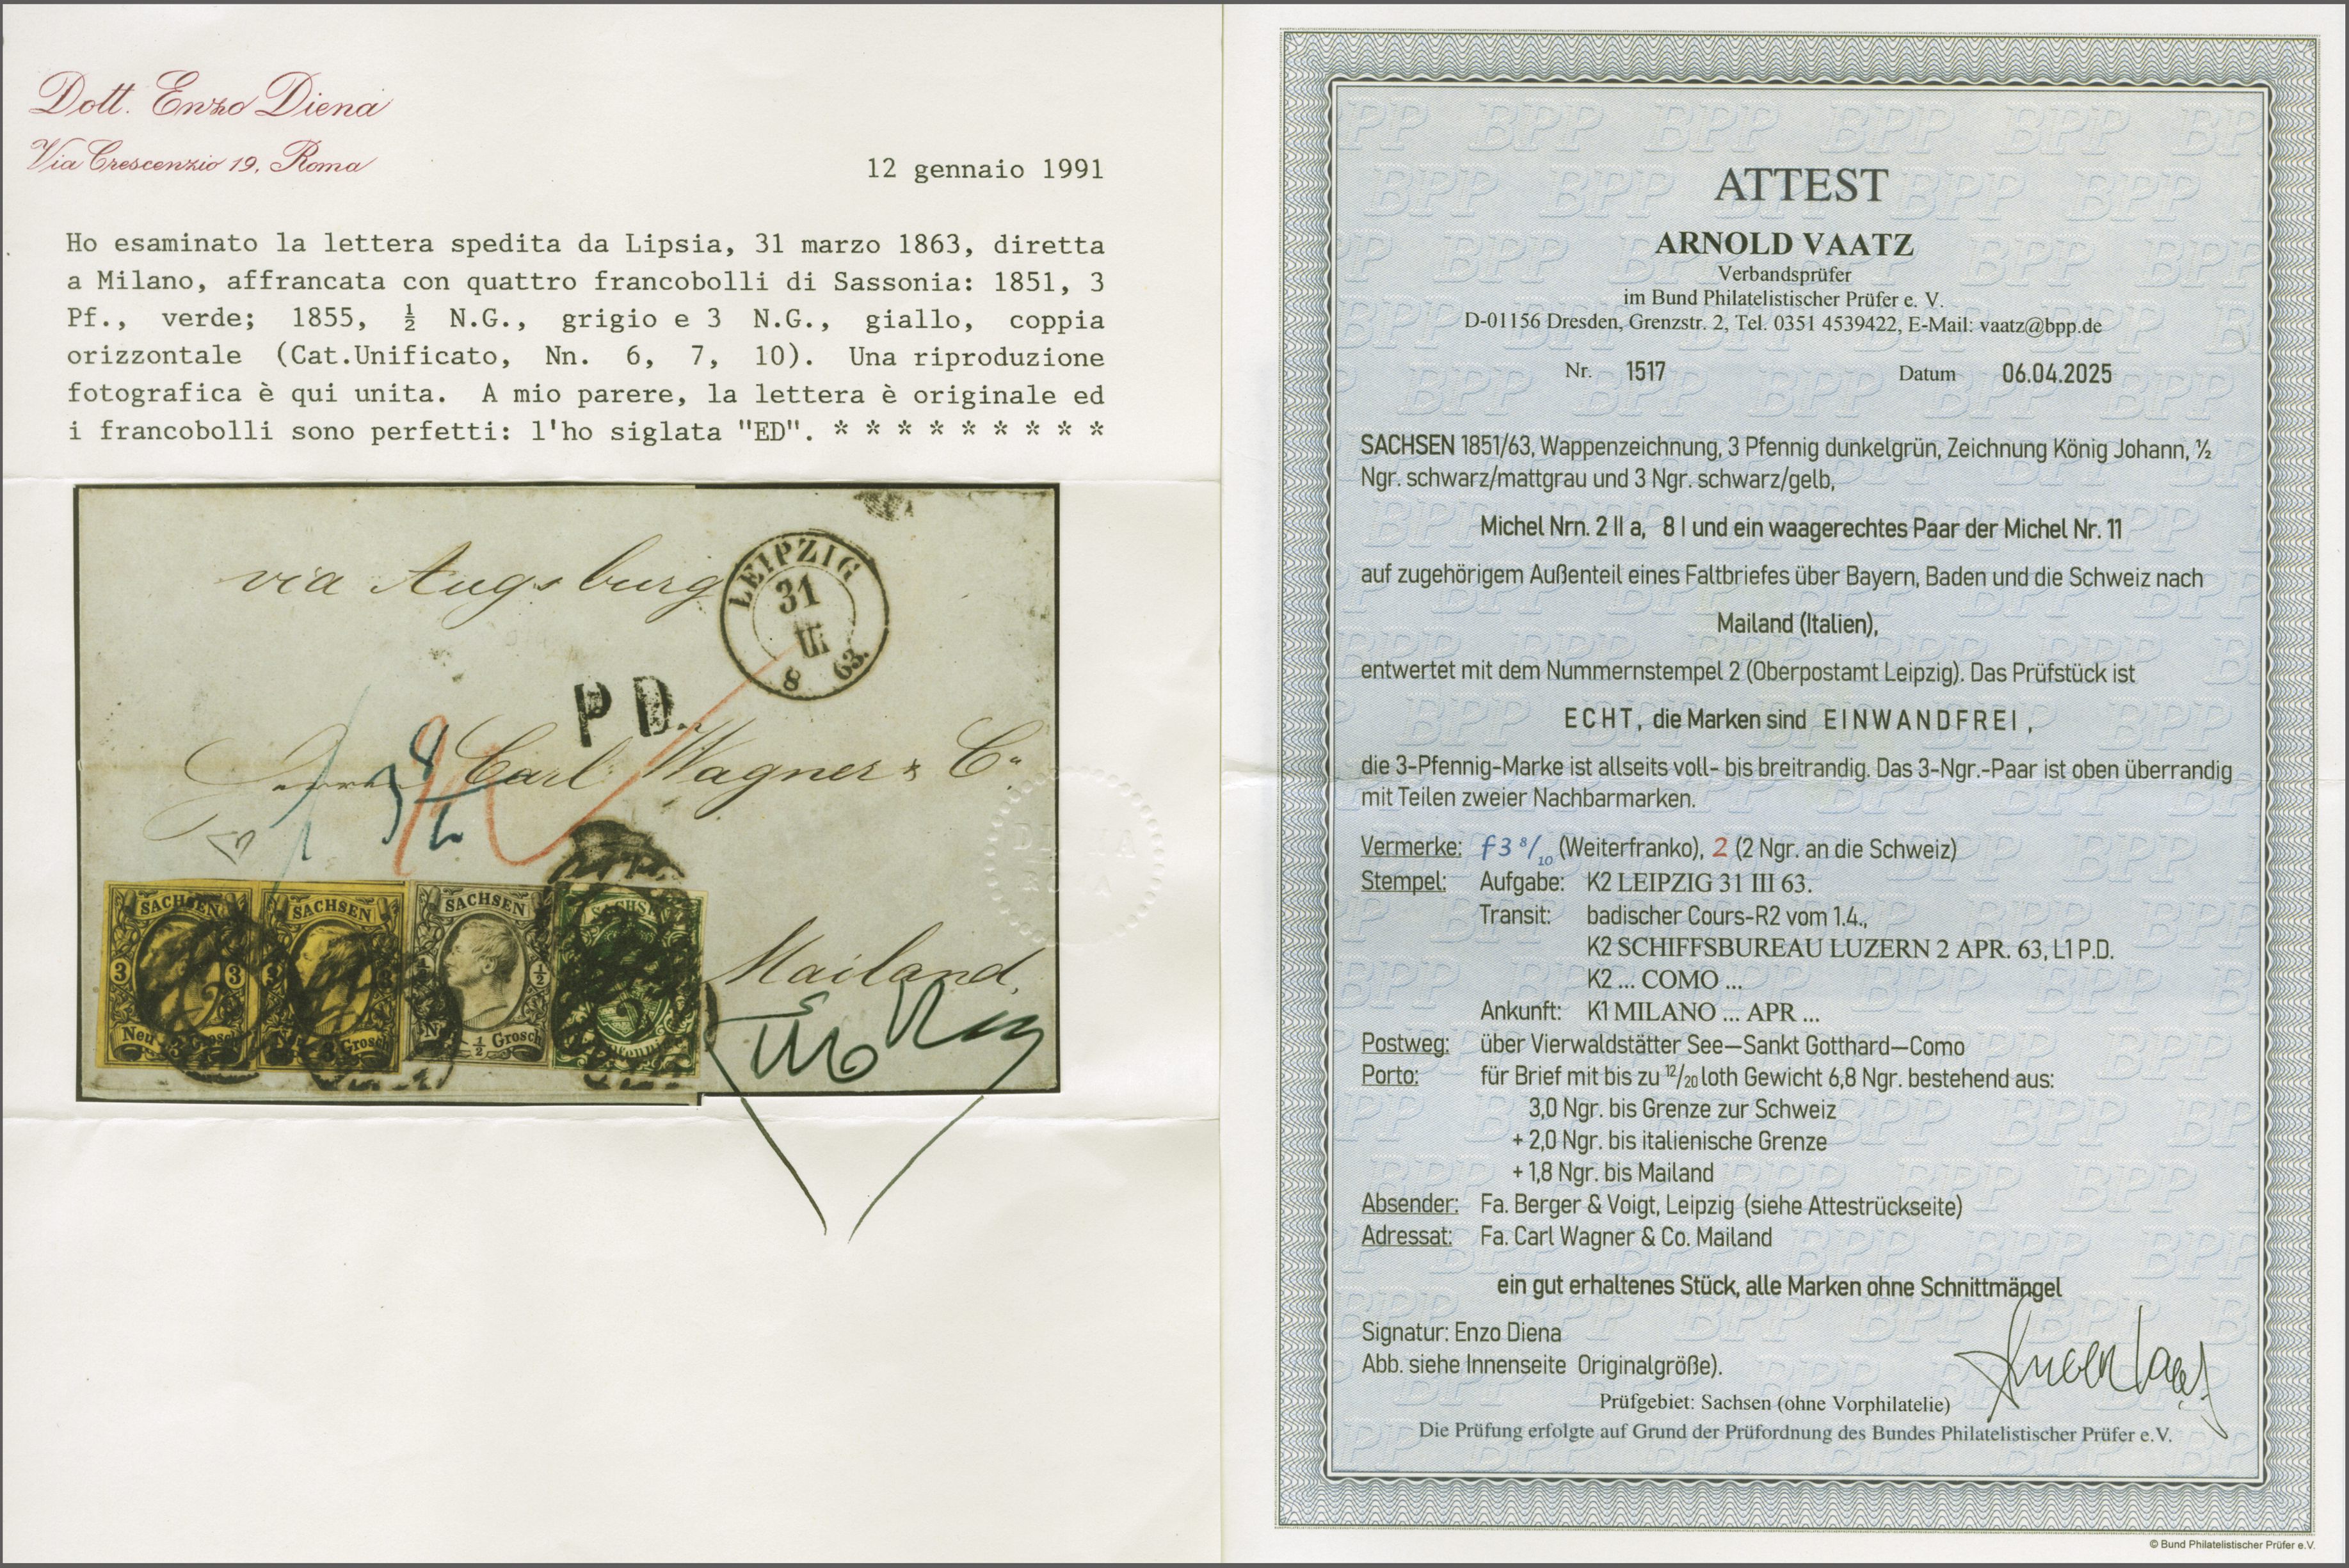 Dott. Enzo Diena
Via Crescenzio 19, Roma
12 gennaio 1991
Ho esaminato la lettera spedita da Lipsia, 31 marzo 1863, diretta
a Milano, affrancata con quattro francobolli di Sassonia: 1851, 3
Pf., verde; 1855, ½ N.G., grigio e 3 N.G., giallo, coppia
orizzontale (Cat.Unificato, Nn. 6, 7, 10). Una riproduzione
fotografica è qui unita. A mio parere, la lettera è originale ed
i francobolli sono perfetti: l'ho siglata "ED". * * * * * * * * *
via Augsburg
LEIPZIG
31
III
8 63.
P D.
Herren Carl Wagner & Co.
DIENA
ROMA
Mailand.
SACHSEN SACHSEN SACHSEN SACHSEN
3 3 3 ½ ½
Neu 3 Grosch 3 Grosch ½ Grosch
ATTEST
ARNOLD VAATZ
Verbandsprüfer
im Bund Philatelistischer Prüfer e. V.
D-01156 Dresden, Grenzstr. 2, Tel. 0351 4539422, E-Mail: vaatz@bpp.de
Nr. 1517 Datum 06.04.2025
SACHSEN 1851/63, Wappenzeichnung, 3 Pfennig dunkelgrün, Zeichnung König Johann, ½
Ngr. schwarz/mattgrau und 3 Ngr. schwarz/gelb,
Michel Nrn. 2 II a, 8 I und ein waagerechtes Paar der Michel Nr. 11
auf zugehörigem Außenteil eines Faltbriefes über Bayern, Baden und die Schweiz nach
Mailand (Italien),
entwertet mit dem Nummernstempel 2 (Oberpostamt Leipzig). Das Prüfstück ist
ECHT, die Marken sind EINWANDFREI,
die 3-Pfennig-Marke ist allseits voll- bis breitrandig. Das 3-Ngr.-Paar ist oben überrandig
mit Teilen zweier Nachbarmarken.
Vermerke: f3 8/10 (Weiterfranko), 2 (2 Ngr. an die Schweiz)
Stempel: Aufgabe: K2 LEIPZIG 31 III 63.
Transit: badischer Cours-R2 vom 1.4.,
K2 SCHIFFSBUREAU LUZERN 2 APR. 63, L1 P.D.
K2 ... COMO ...
Ankunft: K1 MILANO ... APR ...
Postweg: über Vierwaldstätter See—Sankt Gotthard—Como
Porto: für Brief mit bis zu 12/20 loth Gewicht 6,8 Ngr. bestehend aus:
3,0 Ngr. bis Grenze zur Schweiz
+ 2,0 Ngr. bis italienische Grenze
+ 1,8 Ngr. bis Mailand
Absender: Fa. Berger & Voigt, Leipzig (siehe Attestrückseite)
Adressat: Fa. Carl Wagner & Co. Mailand
ein gut erhaltenes Stück, alle Marken ohne Schnittmängel
Signatur: Enzo Diena
Abb. siehe Innenseite Originalgröße).
Prüfgebiet: Sachsen (ohne Vorphilatelie)
Die Prüfung erfolgte auf Grund der Prüfordnung des Bundes Philatelistischer Prüfer e.V.
© Bund Philatelistischer Prüfer e.V.